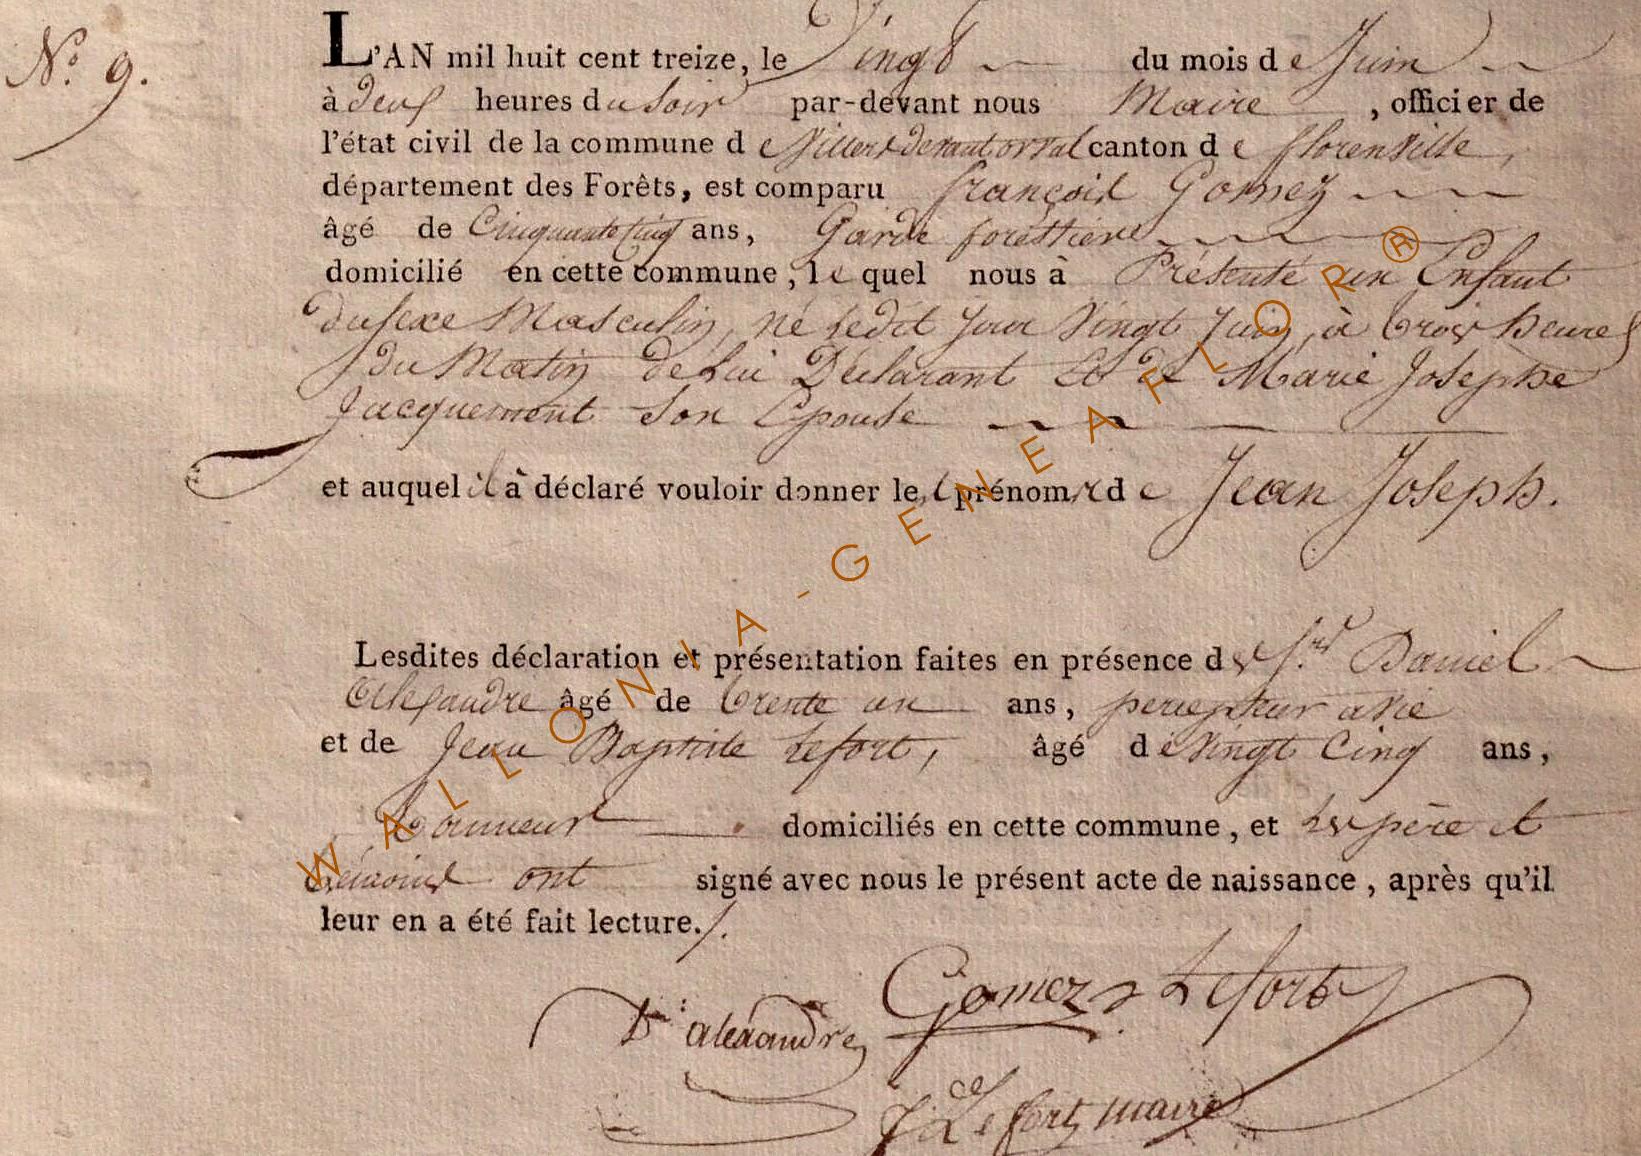 N.o 9.
L'AN mil huit cent treize, le Vingt du mois de Juin
à deux heures du Soir par-devant nous Maire, officier de
l'état civil de la commune de Villers devant orval canton de florenville,
département des Forêts, est comparu françois Gomez
âgé de Cinquante Cinq ans, Garde forestiere
domicilié en cette commune, lequel nous à Présenté un Enfant
du sexe Masculin, né Ledit Jour Vingt Juin, à trois heures
du Matin de Lui Déclarant Et de Marie Josephe
Jacquement Son Epouse
et auquel il à déclaré vouloir donner les prénoms de Jean Joseph.
Lesdites déclaration et présentation faites en présence de Sr. Daniel
Alexandre âgé de trente un ans, percepteur a vie
et de Jean Baptiste Lefort, âgé de Vingt Cinq ans,
domiciliés en cette commune, et Les père et
témoins ont signé avec nous le présent acte de naissance, après qu'il
leur en a été fait lecture./.
Gomez Lefort
alexandre
Lefort maire
WALLONIA-GENEAFLOR®